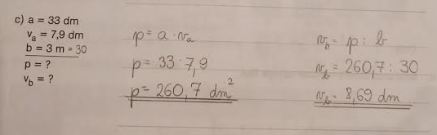 c) a = 33 dm
vₐ = 7,9 dm
b = 3 m = 30
p = ?
v_b = ?
p = a · vₐ
p = 33 · 7,9
p = 260,7 dm²
v_b = p : b
v_b = 260,7 : 30
v_b = 8,69 dm